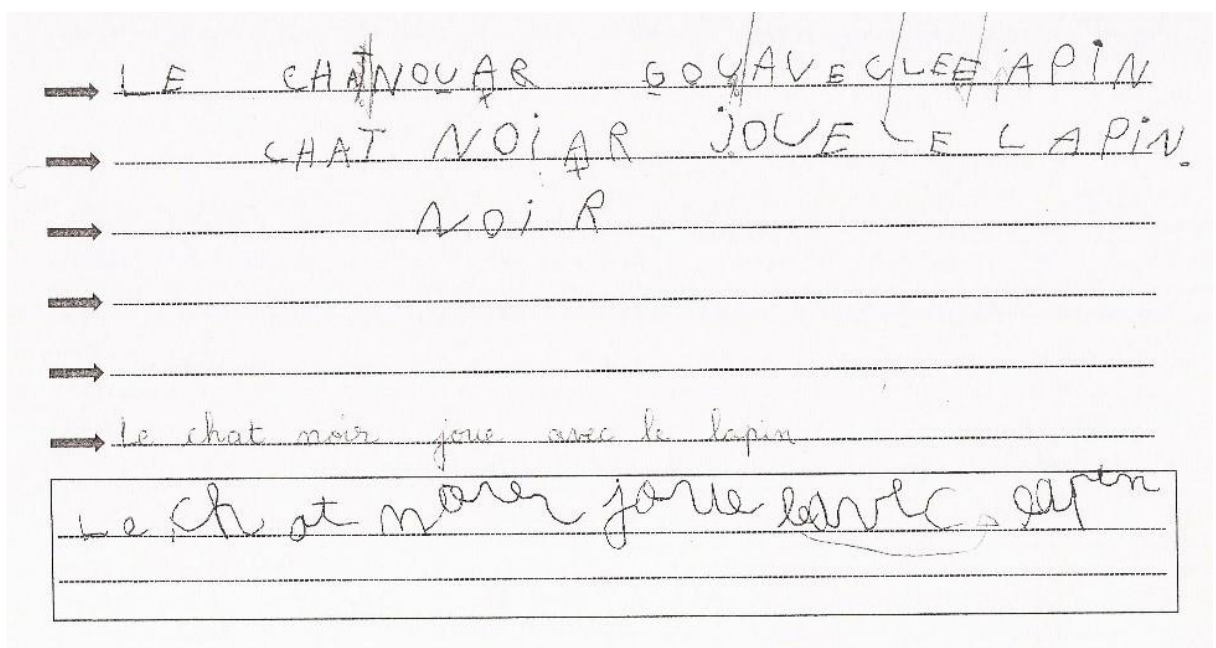 LE CHANOUAR GOUAVECLEE APIN
CHAT NOiAR JOUE LE LAPiN.
NOiR
Le chat noir joue avec le lapin
Le chat noir joue le avec lapin